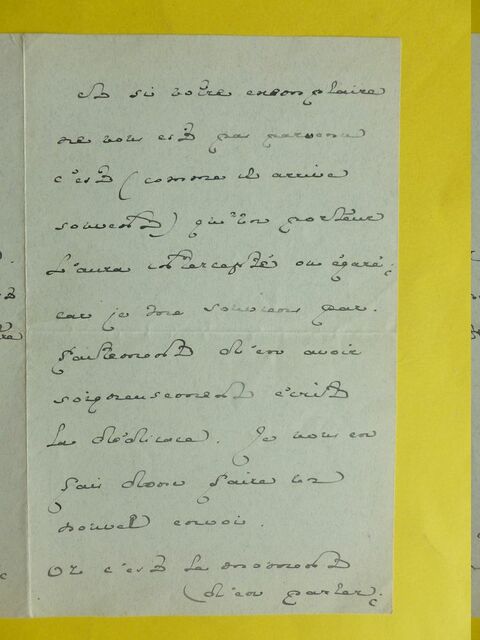 et si votre exemplaire
ne vous est pas parvenu
c'est (comme il arrive
souvent) qu'un porteur
l'aura intercepté ou égaré;
car je me souviens par-
faitement d'en avoir
soigneusement écrit
la dédicace. Je vous en
fais donc faire un
nouvel envoi.
Or c'est le moment
d'en parler;